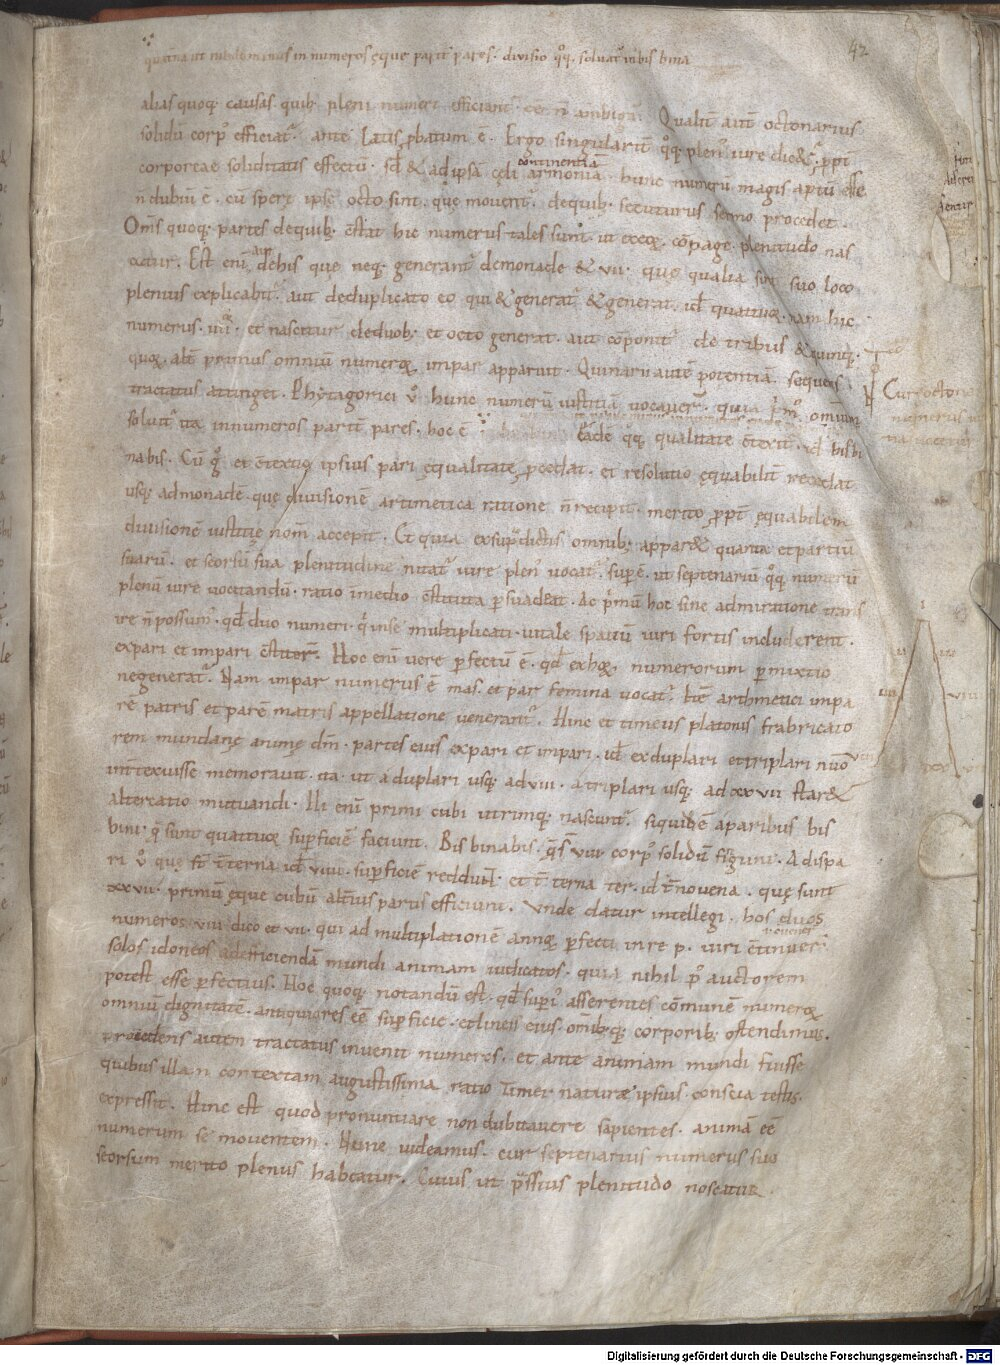 42
ut nihilominus in numeros ęque parit pares. divisio qq. soluat in bis bina
alias quoq; causas quib; pleni numeri efficiant ambigu Qualit aut octonarius
solidu corp efficiat. ante Latis pbatum ē. Ergo singularit qq plen iure dic&. ppt
continentiā
corporeae soliditatis effectū. sd & ad ipsā cęli armoniā hunc numerū magis aptū esse
n̄ dubiū ē. cū sperę ipsę octo sint. quę movent. de quib; secuturus sermo procedet.
Om̄s quoq; partes de quib; c̄stat hic numerus tales sunt. ut ex eoꝝ cōpage plenitudo nas
catur. Est eni aut de his que neq; generant de monade & vii. quę qualia sint suo loco
plenius explicabit. aut de duplicato eo qui & generat & generat. id quattuor. nam hic
numerus. iiii. et nascitur de duob; et octo generat. aut cōponit de tribus & quinq;
quoꝝ. alt primus omniū numeroꝝ impar apparuit. Quinarii autē potentiā. sequens
tractatus attinget. Phytagorici v hunc numerū iustitiā vocaver. quia pm omium
solvit ita in numeros parit pares. hoc ē eade qq qualitate c̄texit. id bis bi
nabis. Cū g et c̄textio ipsius pari ęqualitate pcedat. et resolutio ęquabilit recedat
usq; ad monadē. quę divisionē aritmetica ratione n̄ recipit. merito ppt ęquabilem
divisionē iustitię nom accepit. Et quia ex supdictis omnib; appar& quanta et partiū
suarū. et seorsū sua plenitudine nitat iure plen vocat. supē. ut septenariū qq numerū
plenū iure vocitandū. ratio in medio c̄stituta psuadeat. Ac pmū hoc sine admiratione trans
ire n̄ possum. qd duo numeri. q in se multiplicati. vitale spatiū viri fortis includerent.
ex pari et impari c̄stiter. Hoc eni vere pfectū ē. qd ex hoꝝ numerorum pmixtio
ne generat. Nam impar numerus ē mas. et par femina vocat. Itē arithmetici impa
rē patris et parē matris appellatione venerant. Hinc et timeus platonis frabricato
rem mundanę animę dm. partes eius ex pari et impari. id ex duplari et triplari nūo
int texuisse memoravit. ita ut a duplari usq; ad viii. a triplari usq; ad xxvii star&
altercatio mutuandi. Hi eni primi cubi utrimq; nascunt. siquidē a paribus bis
bini. q sunt quattuor supficiē faciunt. Bis bina bis. qs viii corp solidū fingunt. A dispa
ri v quę st terna id viiii. supficiē reddunt. et terna ter. id novena. quę sunt
xxvii. primū ęque cubū altius partis efficiunt. unde datur intellegi. hos duos
numeros viii dico et vii. qui ad multiplationē anni pfecti in re p. viri c̄vener.
solos idoneos ad efficiendā mundi animam iudicatos. quia nihil p auctorem
potest esse pfectius. Hoc quoq; notandū est. qd superi asserentes cōmunē numeroꝝ
omniū dignitatē. antiquiores eē supficie. et lineis eius omibq; corporib; ostendimus.
procedens autem tractatus invenit numeros. et ante animam mundi fuisse
quibus illam contextam augustissima ratio Timei naturae ipsius conscia testis.
expressit. Hinc est quod pronuntiare non dubitavere sapientes. animā eē
numerum se moventem. Nunc videamus. cur septenarius numerus suo
seorsum merito plenus habeatur. Cuius ut pssius plenitudo noscatur.
Cur octona
numerus iu